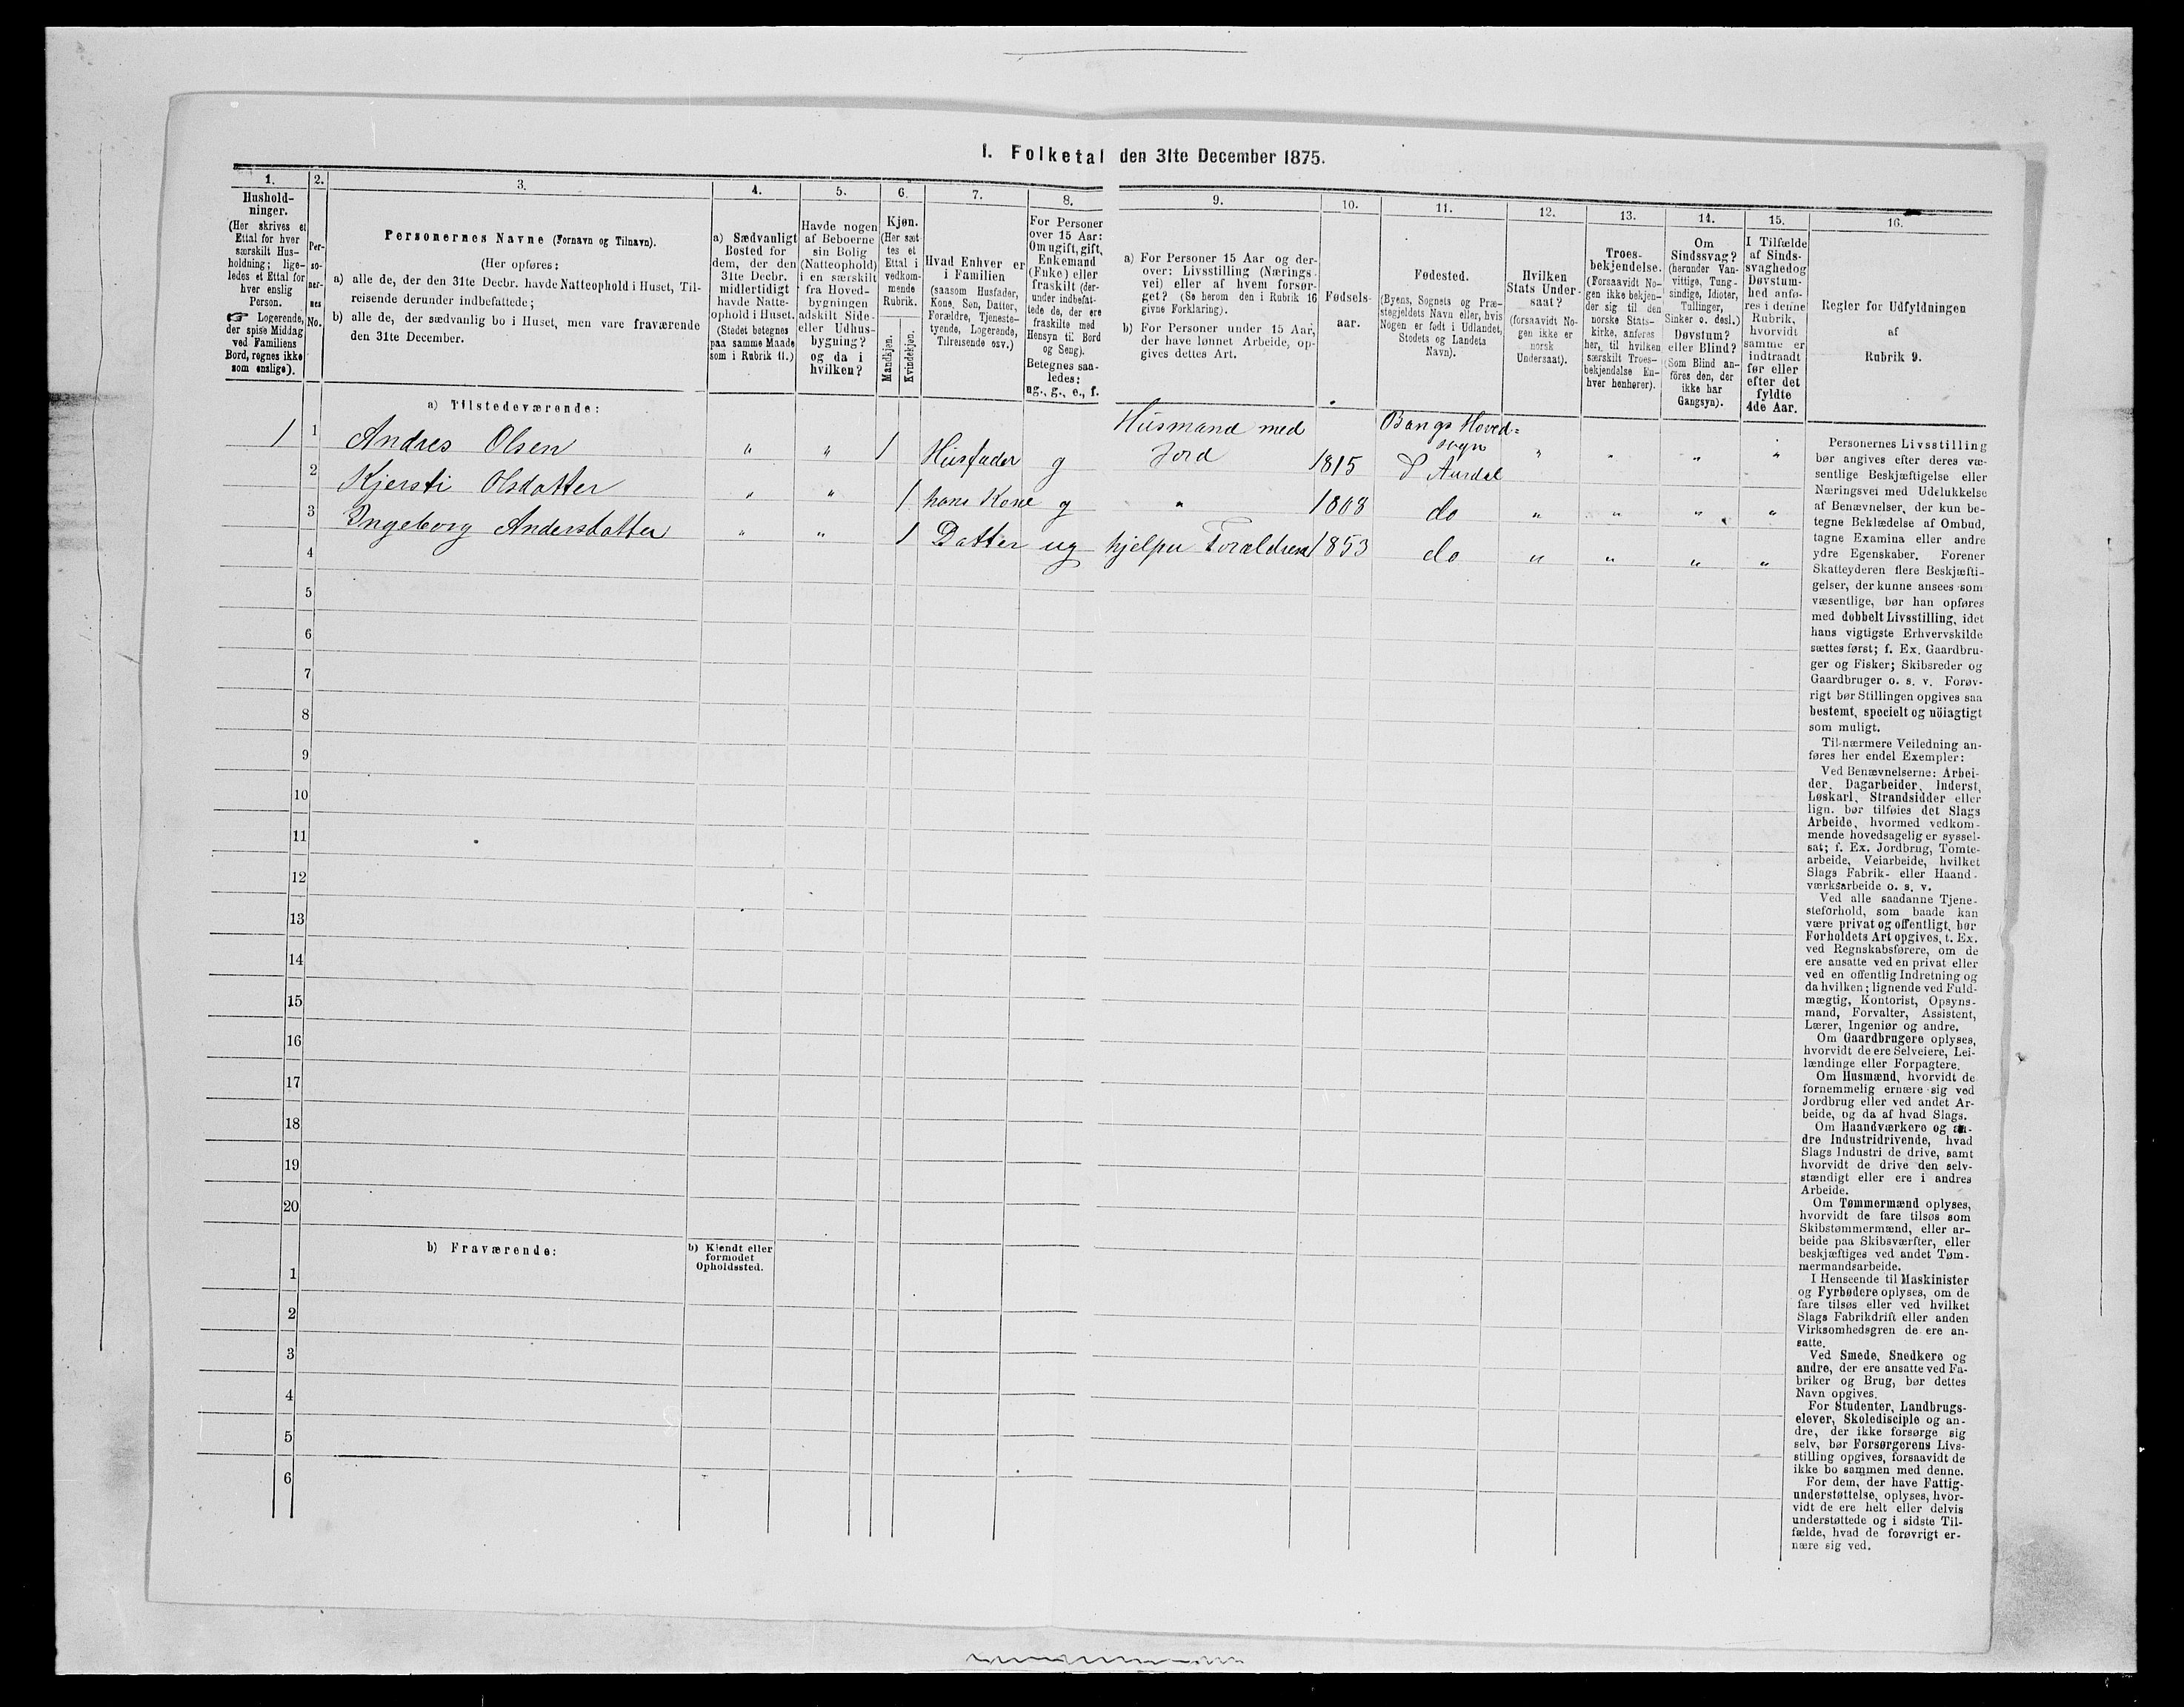 1. Folketal den 31te December 1875.
1.
2.
3.
4.
5.
6.
7.
8.
9.
10.
11.
12.
13.
14.
15.
16.
Hushold-
ninger.
(Her skrives et
Ettal for hver
særskilt Hus-
holdning; lige-
ledes et Ettal for
hver enslig
Person.
☞ Logerende,
der spise Middag
ved Familiens
Bord, regnes ikke
som enslige).
Per-
so-
ner-
nes
No.
Personernes Navne (Fornavn og Tilnavn).
(Her opføres:
a) alle de, der den 31te Decbr. havde Natteophold i Huset, Til-
reisende derunder indbefattede;
b) alle de, der sædvanlig bo i Huset, men vare fraværende
den 31te December.
a) Sædvanligt
Bosted for
dem, der den
31te Decbr.
midlertidigt
havde Natte-
ophold i Huset.
(Stedet betegnes
paa samme Maade
som i Rubrik 11.)
Havde nogen
af Beboerne
sin Bolig
(Natteophold)
i en særskilt
fra Hoved-
bygningen
adskilt Side-
eller Udhus-
bygning?
og da i
hvilken?
Kjøn.
(Her sæt-
tes et
Ettal i
vedkom-
mende
Rubrik.
Mandkjøn.
Kvindekjøn.
Hvad Enhver er
i Familien
(saasom Husfader,
Kone, Søn, Datter,
Forældre, Tjeneste-
tyende, Logerende,
Tilreisende osv.)
For Personer
over 15 Aar:
Om ugift, gift,
Enkemand
(Enke) eller
fraskilt (der-
under indbefat-
tede de, der ere
fraskilte med
Hensyn til Bord
og Seng).
Betegnes saa-
ledes:
ug., g., e., f.
a) For Personer 15 Aar og der-
over: Livsstilling (Nærings-
vei) eller af hvem forsør-
get? (Se herom den i Rubrik 16
givne Forklaring).
b) For Personer under 15 Aar,
der have lønnet Arbeide, op-
gives dettes Art.
Fødsels-
aar.
Fødested.
(Byens, Sognets og Præ-
stegjeldets Navn eller, hvis
Nogen er født i Udlandet,
Stedets og Landets
Navn).
Hvilken
Stats Under-
saat?
(forsaavidt No-
gen ikke er
norsk
Undersaat).
Troes-
bekjendelse.
(Forsaavidt No-
gen ikke bekjen-
der sig til den
norske Stats-
kirke, anføres
her, til hvilken
særskilt Troes-
bekjendelse En-
hver henhører).
Om
Sindssvag?
(herunder Van-
vittige, Tung-
sindige, Idioter,
Tullinger,
Sinker o. desl.)
Døvstum?
eller Blind?
(Som Blind an-
føres den, der
ikke har
Gangsyn).
I Tilfælde
af Sinds-
svaghed og
Døvstum-
hed anfø-
res i denne
Rubrik,
hvorvidt
samme er
indtraadt
før eller
efter det
fyldte
4de Aar.
Regler for Udfyldningen
af
Rubrik 9.
a) Tilstedeværende:
1 1 Andres Olsen " " 1 Husfader g Husmand med Jord 1815 Bangs Hoved=sogn S Aurdal " " " "
2 Kjersti Olsdatter " " 1 hans Kone g " 1808 do " " " "
3 Ingeborg Andersdatter " " 1 Datter ug hjelper Forældrene 1853 do " " " "
4
5
6
7
8
9
10
11
12
13
14
15
16
17
18
19
20
b) Fraværende:
b) Kjendt eller
formodet
Opholdssted.
1
2
3
4
5
6
Personernes Livsstilling
bør angives efter deres væ-
sentlige Beskjæftigelse eller
Næringsvei med Udelukkelse
af Benævnelser, der kun be-
tegne Beklædelse af Ombud,
tagne Examina eller andre
ydre Egenskaber. Forener
Skatteyderen flere Beskjæfti-
gelser, der kunne ansees som
væsentlige, bør han opføres
med dobbelt Livsstilling, idet
hans vigtigste Erhvervskilde
sættes først; f. Ex. Gaardbru-
ger og Fisker; Skibsreder og
Gaardbruger o. s. v. Forøv-
rigt bør Stillingen opgives saa
bestemt, specielt og nöiagtigt
som muligt.
Til nærmere Veiledning an-
føres her endel Exempler:
Ved Benævnelserne: Arbei-
der, Dagarbeider, Inderst,
Løskarl, Strandsidder eller
lign. bør tilføies det Slags
Arbeide, hvormed vedkom-
mende hovedsagelig er syssel-
sat; f. Ex. Jordbrug, Tomte-
arbeide, Veiarbeide, hvilket
Slags Fabrik- eller Haand-
værksarbeide o. s. v.
Ved alle saadanne Tjene-
steforhold, som baade kan
være privat og offentligt, bør
Forholdets Art opgives, t. Ex.
ved Regnskabsførere, om de
ere ansatte ved en privat eller
ved en offentlig Indretning og
da hvilken; lignende ved Fuld-
mægtig, Kontorist, Opsyns-
mand, Forvalter, Assistent,
Lærer, Ingeniør og andre.
Om Gaardbrugere oplyses,
hvorvidt de ere Selveiere, Lei-
lændinge eller Forpagtere.
Om Husmænd, hvorvidt de
fornemmelig ernære sig ved
Jordbrug eller ved andet Ar-
beide, og da af hvad Slags.
Om Haandværkere og an-
dre Industridrivende, hvad
Slags Industri de drive, samt
hvorvidt de drive den selv-
stændigt eller ere i andres
Arbeide.
Om Tømmermænd oplyses,
hvorvidt de fare tilsøs som
Skibstømmermænd, eller ar-
beide paa Skibsværfter, eller
beskjæftiges ved andet Tøm-
mermandsarbeide.
I Henseende til Maskinister
og Fyrbødere oplyses, om de
fare tilsøs eller ved hvilket
Slags Fabrikdrift eller anden
Virksomhedsgren de ere an-
satte.
Ved Smede, Snedkere og
andre, der ere ansatte ved Fa-
briker og Brug, bør dettes
Navn opgives.
For Studenter, Landbrugs-
elever, Skoledisciple og an-
dre, der ikke forsørge sig
selv, bør Forsørgerens Livs-
stilling opgives, forsaavidt de
ikke bo sammen med denne.
For dem, der have Fattig-
understøttelse, oplyses, hvor-
vidt de ere helt eller delvis
understøttede og i sidste Til-
fælde, hvad de forøvrigt er-
nære sig ved.